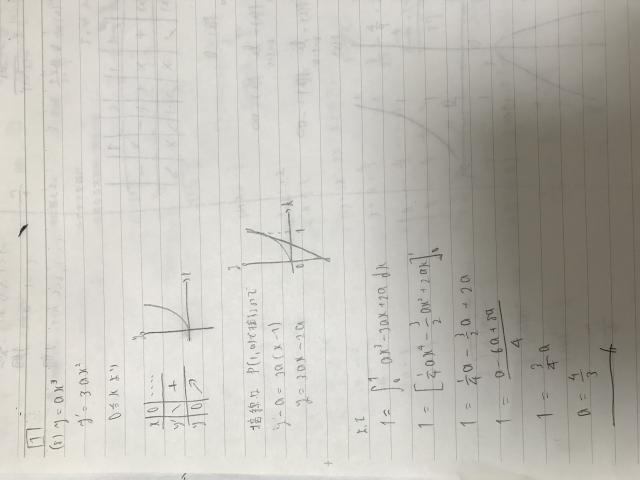 1
(2) y = ax³
y' = 3ax²
0 ≦ x より
x | 0 | ....
y' | \ | +
y | 0 | ↗
接線は P(1, a)で接するので
y - a = 3a(x - 1)
y = 3ax - 2a
よって
1 = ∫₀¹ ax³ - 3ax + 2a dx
1 = [1/4 ax⁴ - 3/2 ax² + 2ax]₀¹
1 = 1/4 a - 3/2 a + 2a
1 = (a - 6a + 8a)/4
1 = 3/4 a
a = 4/3